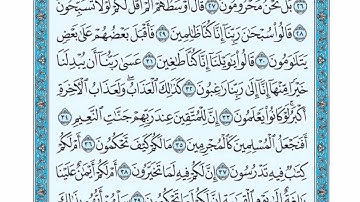 ٢٦ بَلْ نَحْنُ مَحْرُومُونَ ٢٧ قَالَ أَوْسَطُهُمْ أَلَمْ أَقُل لَّكُمْ لَوْلَا تُسَبِّحُونَ
٢٨ قَالُوا۟ سُبْحَٰنَ رَبِّنَآ إِنَّا كُنَّا ظَٰلِمِينَ ٢٩ فَأَقْبَلَ بَعْضُهُمْ عَلَىٰ بَعْضٍ
يَتَلَٰوَمُونَ ٣٠ قَالُوا۟ يَٰوَيْلَنَآ إِنَّا كُنَّا طَٰغِينَ ٣١ عَسَىٰ رَبُّنَآ أَن يُبْدِلَنَا
خَيْرًا مِّنْهَآ إِنَّآ إِلَىٰ رَبِّنَا رَٰغِبُونَ ٣٢ كَذَٰلِكَ ٱلْعَذَابُ وَلَعَذَابُ ٱلْءَاخِرَةِ
أَكْبَرُ لَوْ كَانُوا۟ يَعْلَمُونَ ٣٣ إِنَّ لِلْمُتَّقِينَ عِندَ رَبِّهِمْ جَنَّٰتِ ٱلنَّعِيمِ ٣٤
أَفَنَجْعَلُ ٱلْمُسْلِمِينَ كَٱلْمُجْرِمِينَ ٣٥ مَا لَكُمْ كَيْفَ تَحْكُمُونَ ٣٦ أَمْ لَكُمْ
كِتَٰبٌ فِيهِ تَدْرُسُونَ ٣٧ إِنَّ لَكُمْ فِيهِ لَمَا تَخَيَّرُونَ ٣٨ أَمْ لَكُمْ أَيْمَٰنٌ عَلَيْنَا